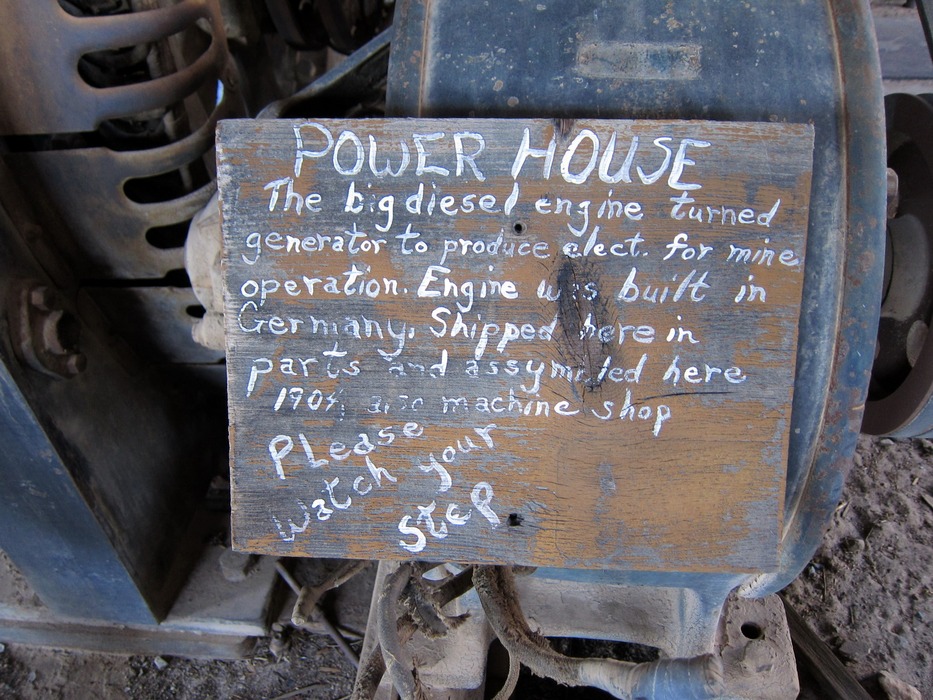 POWER HOUSE
The big diesel engine turned
generator to produce elect. for mine
operation. Engine was built in
Germany. Shipped here in
parts and assymbled here
machine shop
Please
watch your
step